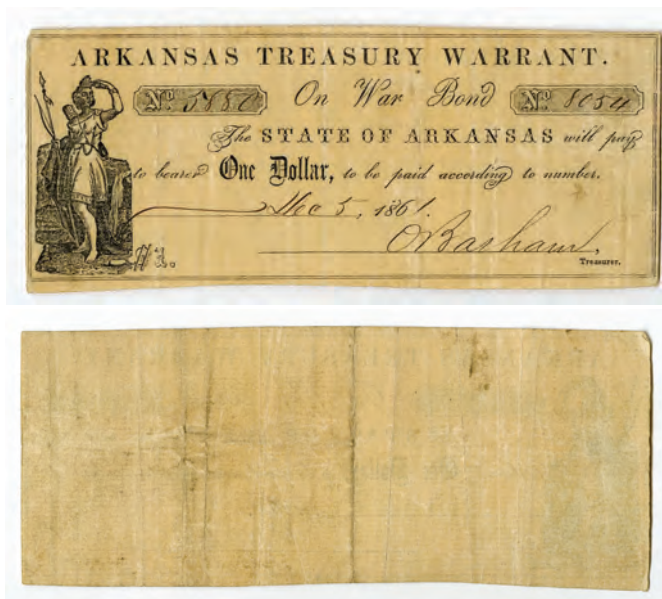 ARKANSAS TREASURY WARRANT.
No. 5880 On War Bond No. 8054
The STATE OF ARKANSAS will pay
to bearer One Dollar, to be paid according to number.
Dec 5, 1861.
O Basham,
Treasurer.